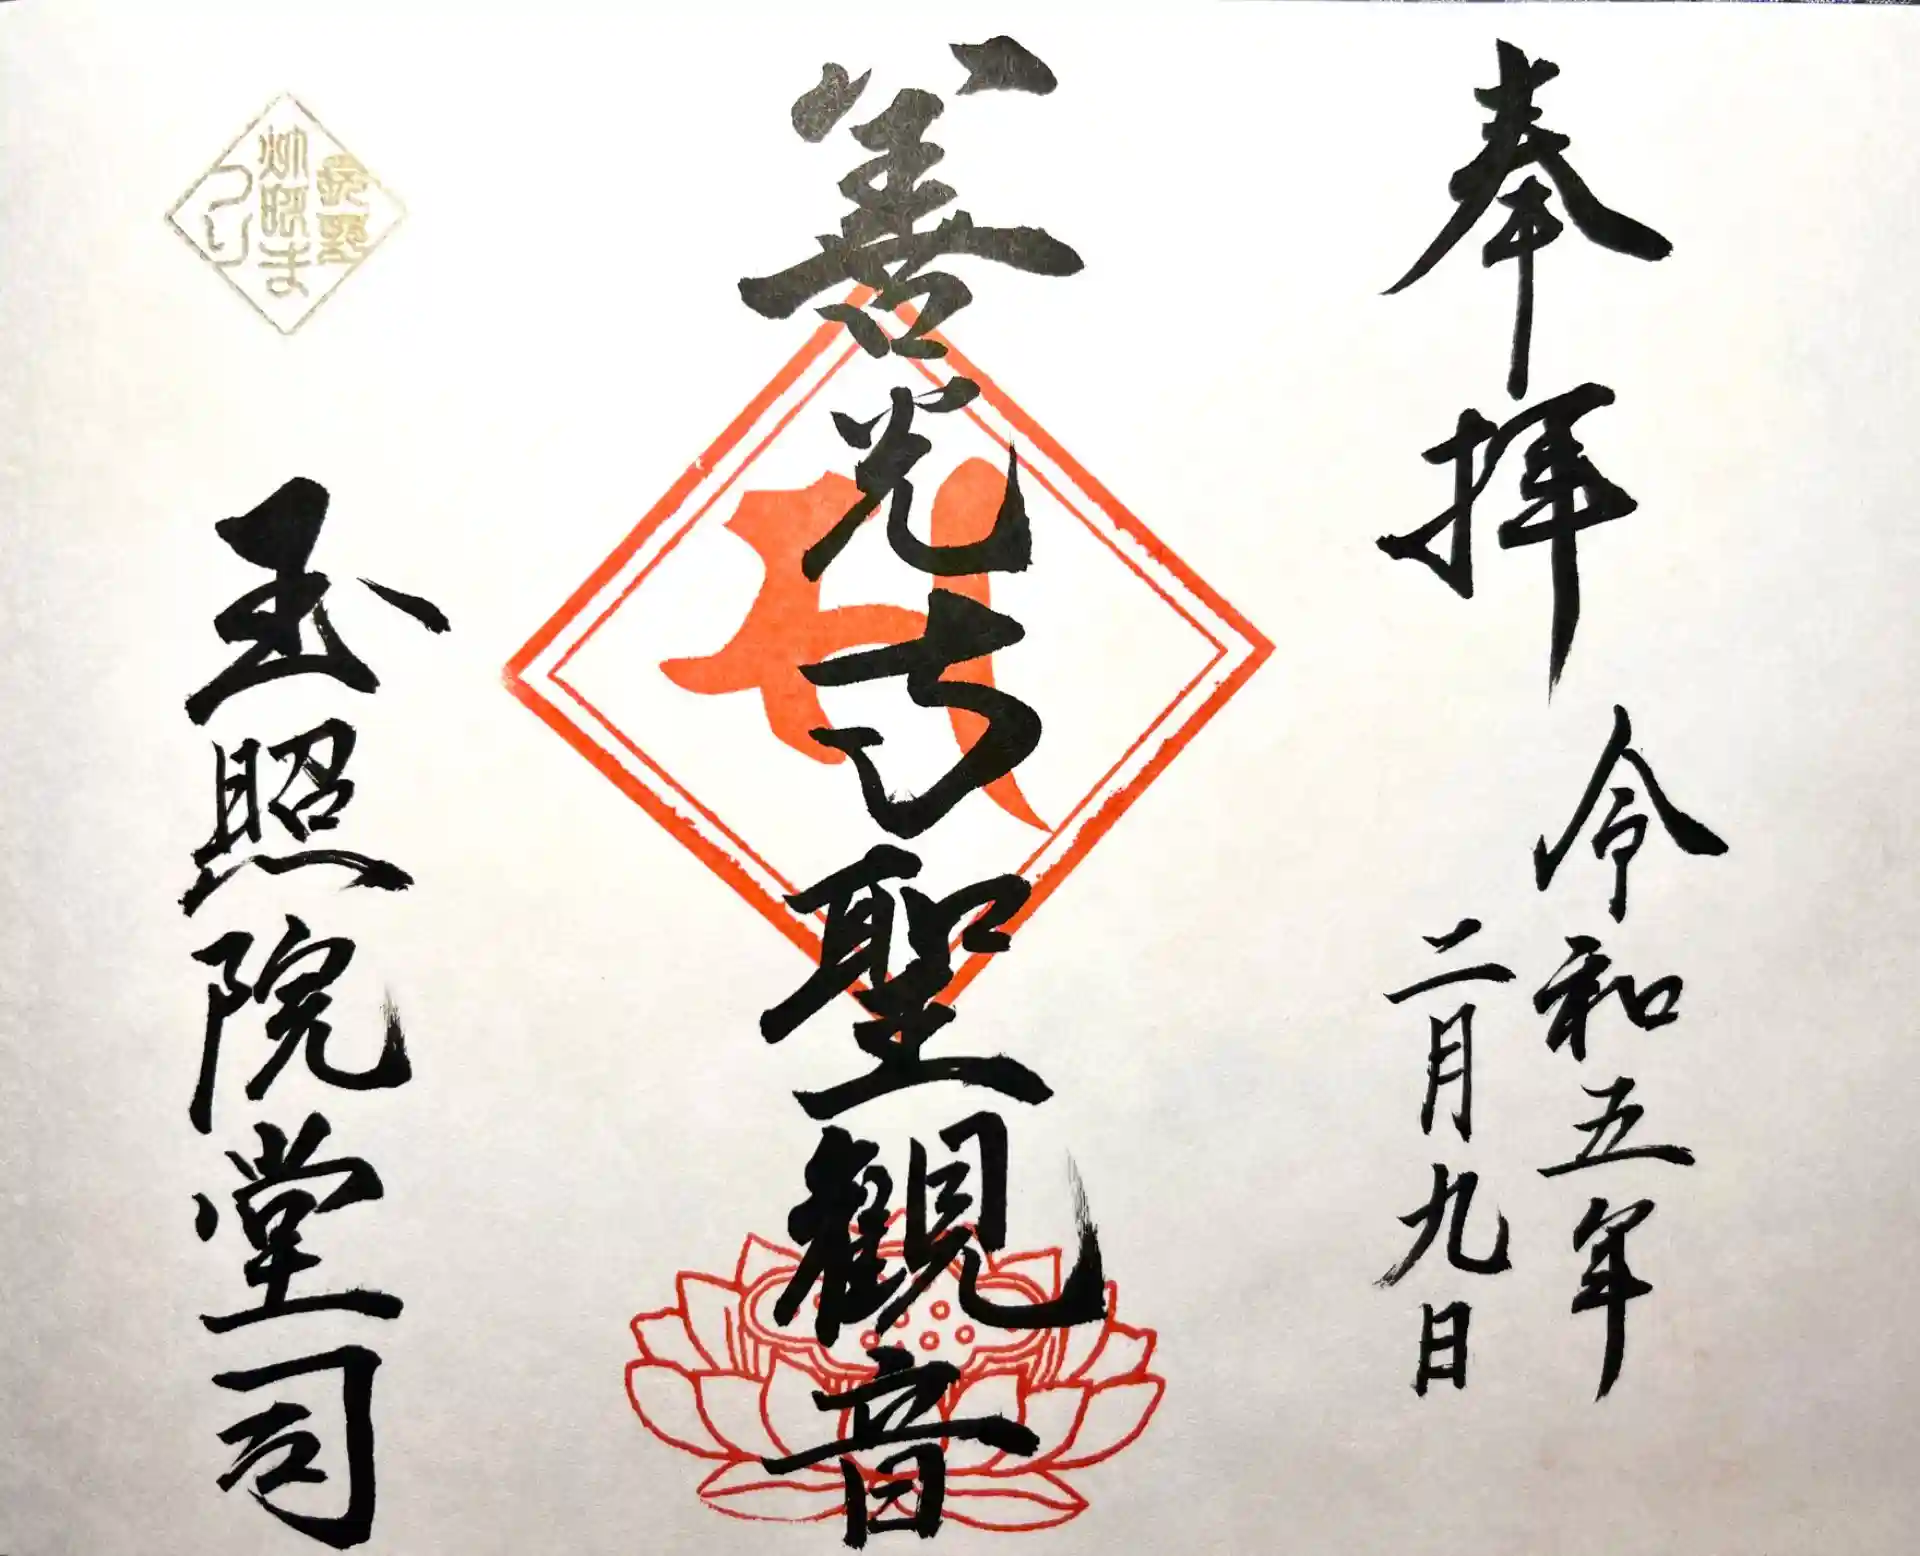 奉拝
令和五年
二月九日
善光寺聖観音
玉照院堂司
長野
灯明まつり